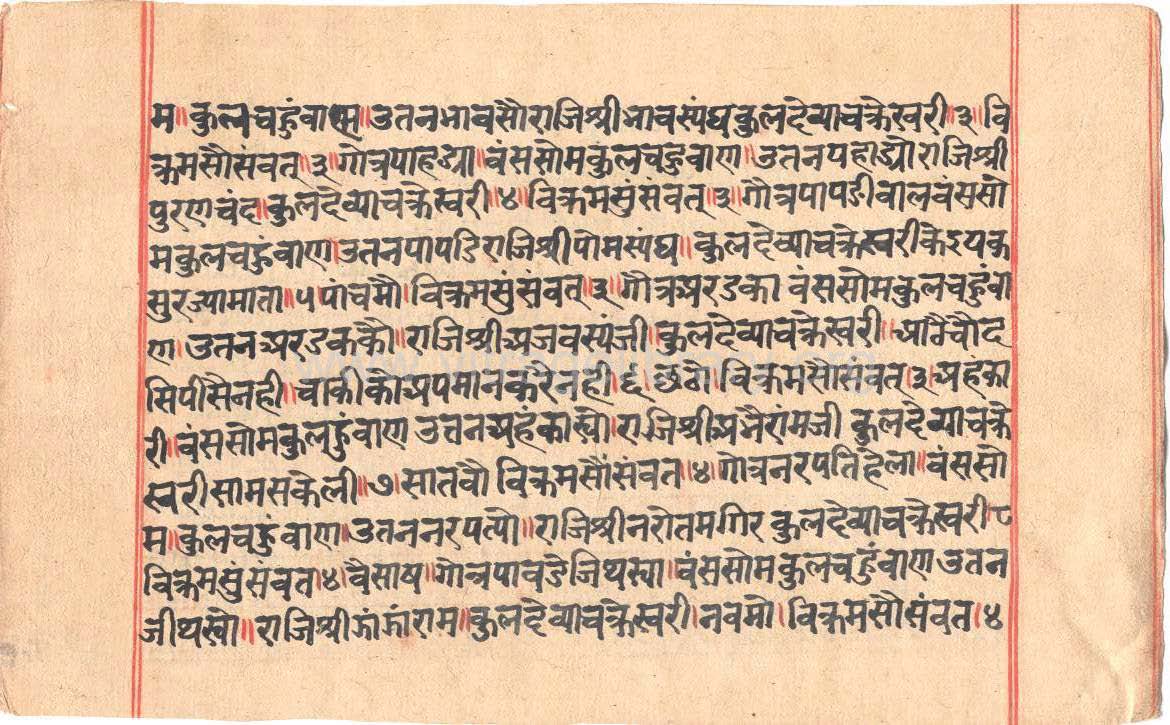 म॥ कुलचहुंवाण॥ उतनभावसौराजिश्रीभावस्यंघकुलदेव्याचक्रेस्वरी॥३॥वि
क्रमसौसंवत्॥३॥गोत्रपाहड्या॥वंससोमकुलचहुवाण॥उतनपहाड्यौराजिश्री
पुरणचंद॥कुलदेव्याचक्रेस्वरी॥४॥विक्रमसुंसंवत्॥३॥गौत्रपापडीवालवंससो
मकुलचहुंवाण॥उतनपापडिराजिश्रीपोमस्यंघ॥कुलदेव्याचक्रेस्वरी
सुरज्यामाता॥५पांचमौ॥विक्रमसुंसंवत्॥३॥गौत्रअरडका वंससोमकुलचहुंवा
ण॥उतनअरडककौ॥राजिश्रीअजवस्यंजी॥कुलदेव्याचक्रेस्वरी॥
सिपीसैनही॥वाकीकोअपमानकरैनही॥६॥विक्रमसौसंवत॥३॥अहंका
री॥वंससोमकुलहुंवाण उतनअहंकास्यो॥राजिश्रीअभैरांमजी कुलदेव्याचक्रे
स्वरी॥७॥सातवौ विक्रमसौंसंवत॥४॥गोत्रनरपतिहैला॥वंससो
म॥कुलचहुंवाण॥उतननरपत्यो॥राजिश्रीनरोतमगिर कुलदेव्याचक्रेस्वरी॥८
विक्रमसुंसंवत॥४॥वैसाष॥गोत्र वंससोमकुलचहुंवाण उतन
राजिश्रीझांझांराम॥कुलदेव्याचक्रेस्वरी॥नवमो॥विक्रमसौसंवत॥४